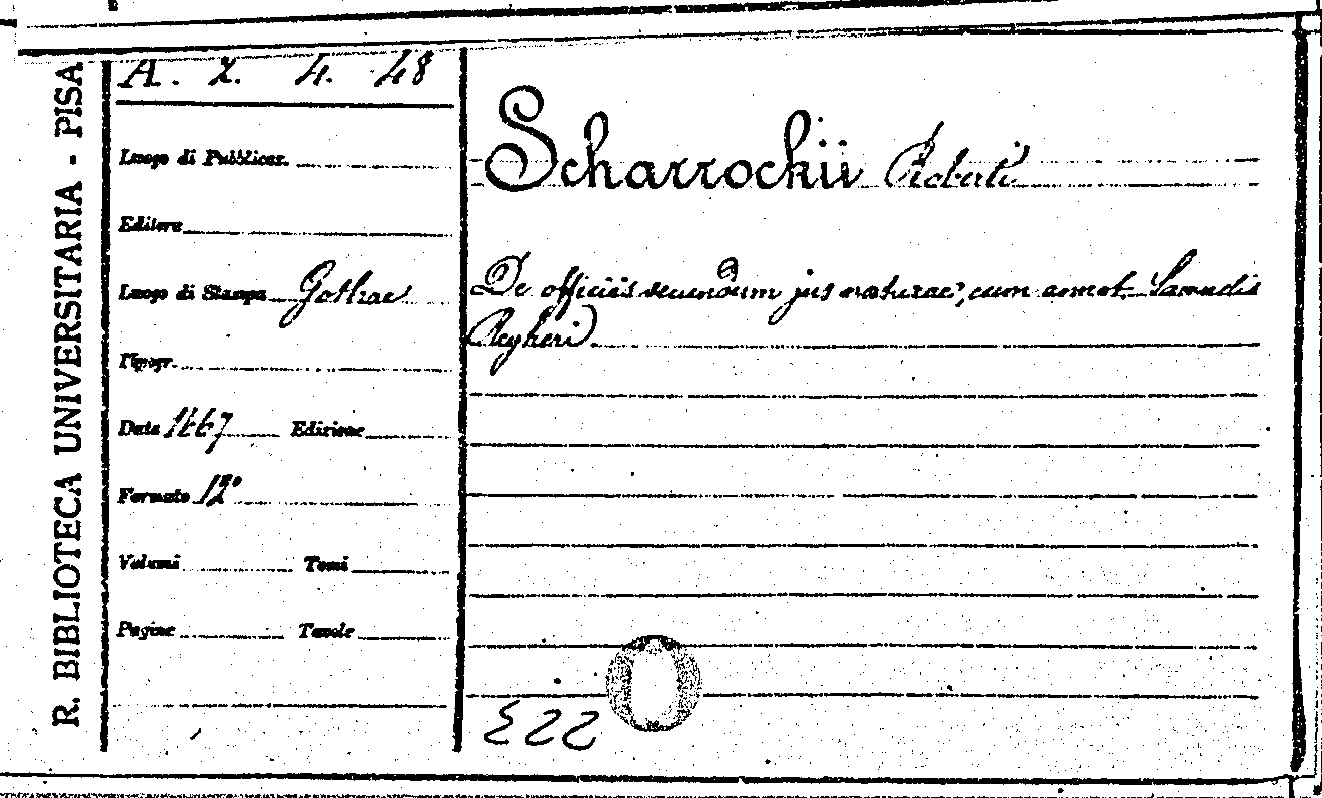 R. BIBLIOTECA UNIVERSITARIA - PISA
A. z. 4. 48
Luogo di Pubblicaz.
Editore
Luogo di Stampa Gothae
Tipogr.
Data 1667 Edizione
Formato 12°
Volumi Tomi
Pagine Tavole
Scharrockii Roberti
De officiis secundum jus naturae, cum annot. Samuelis
Reyheri
522